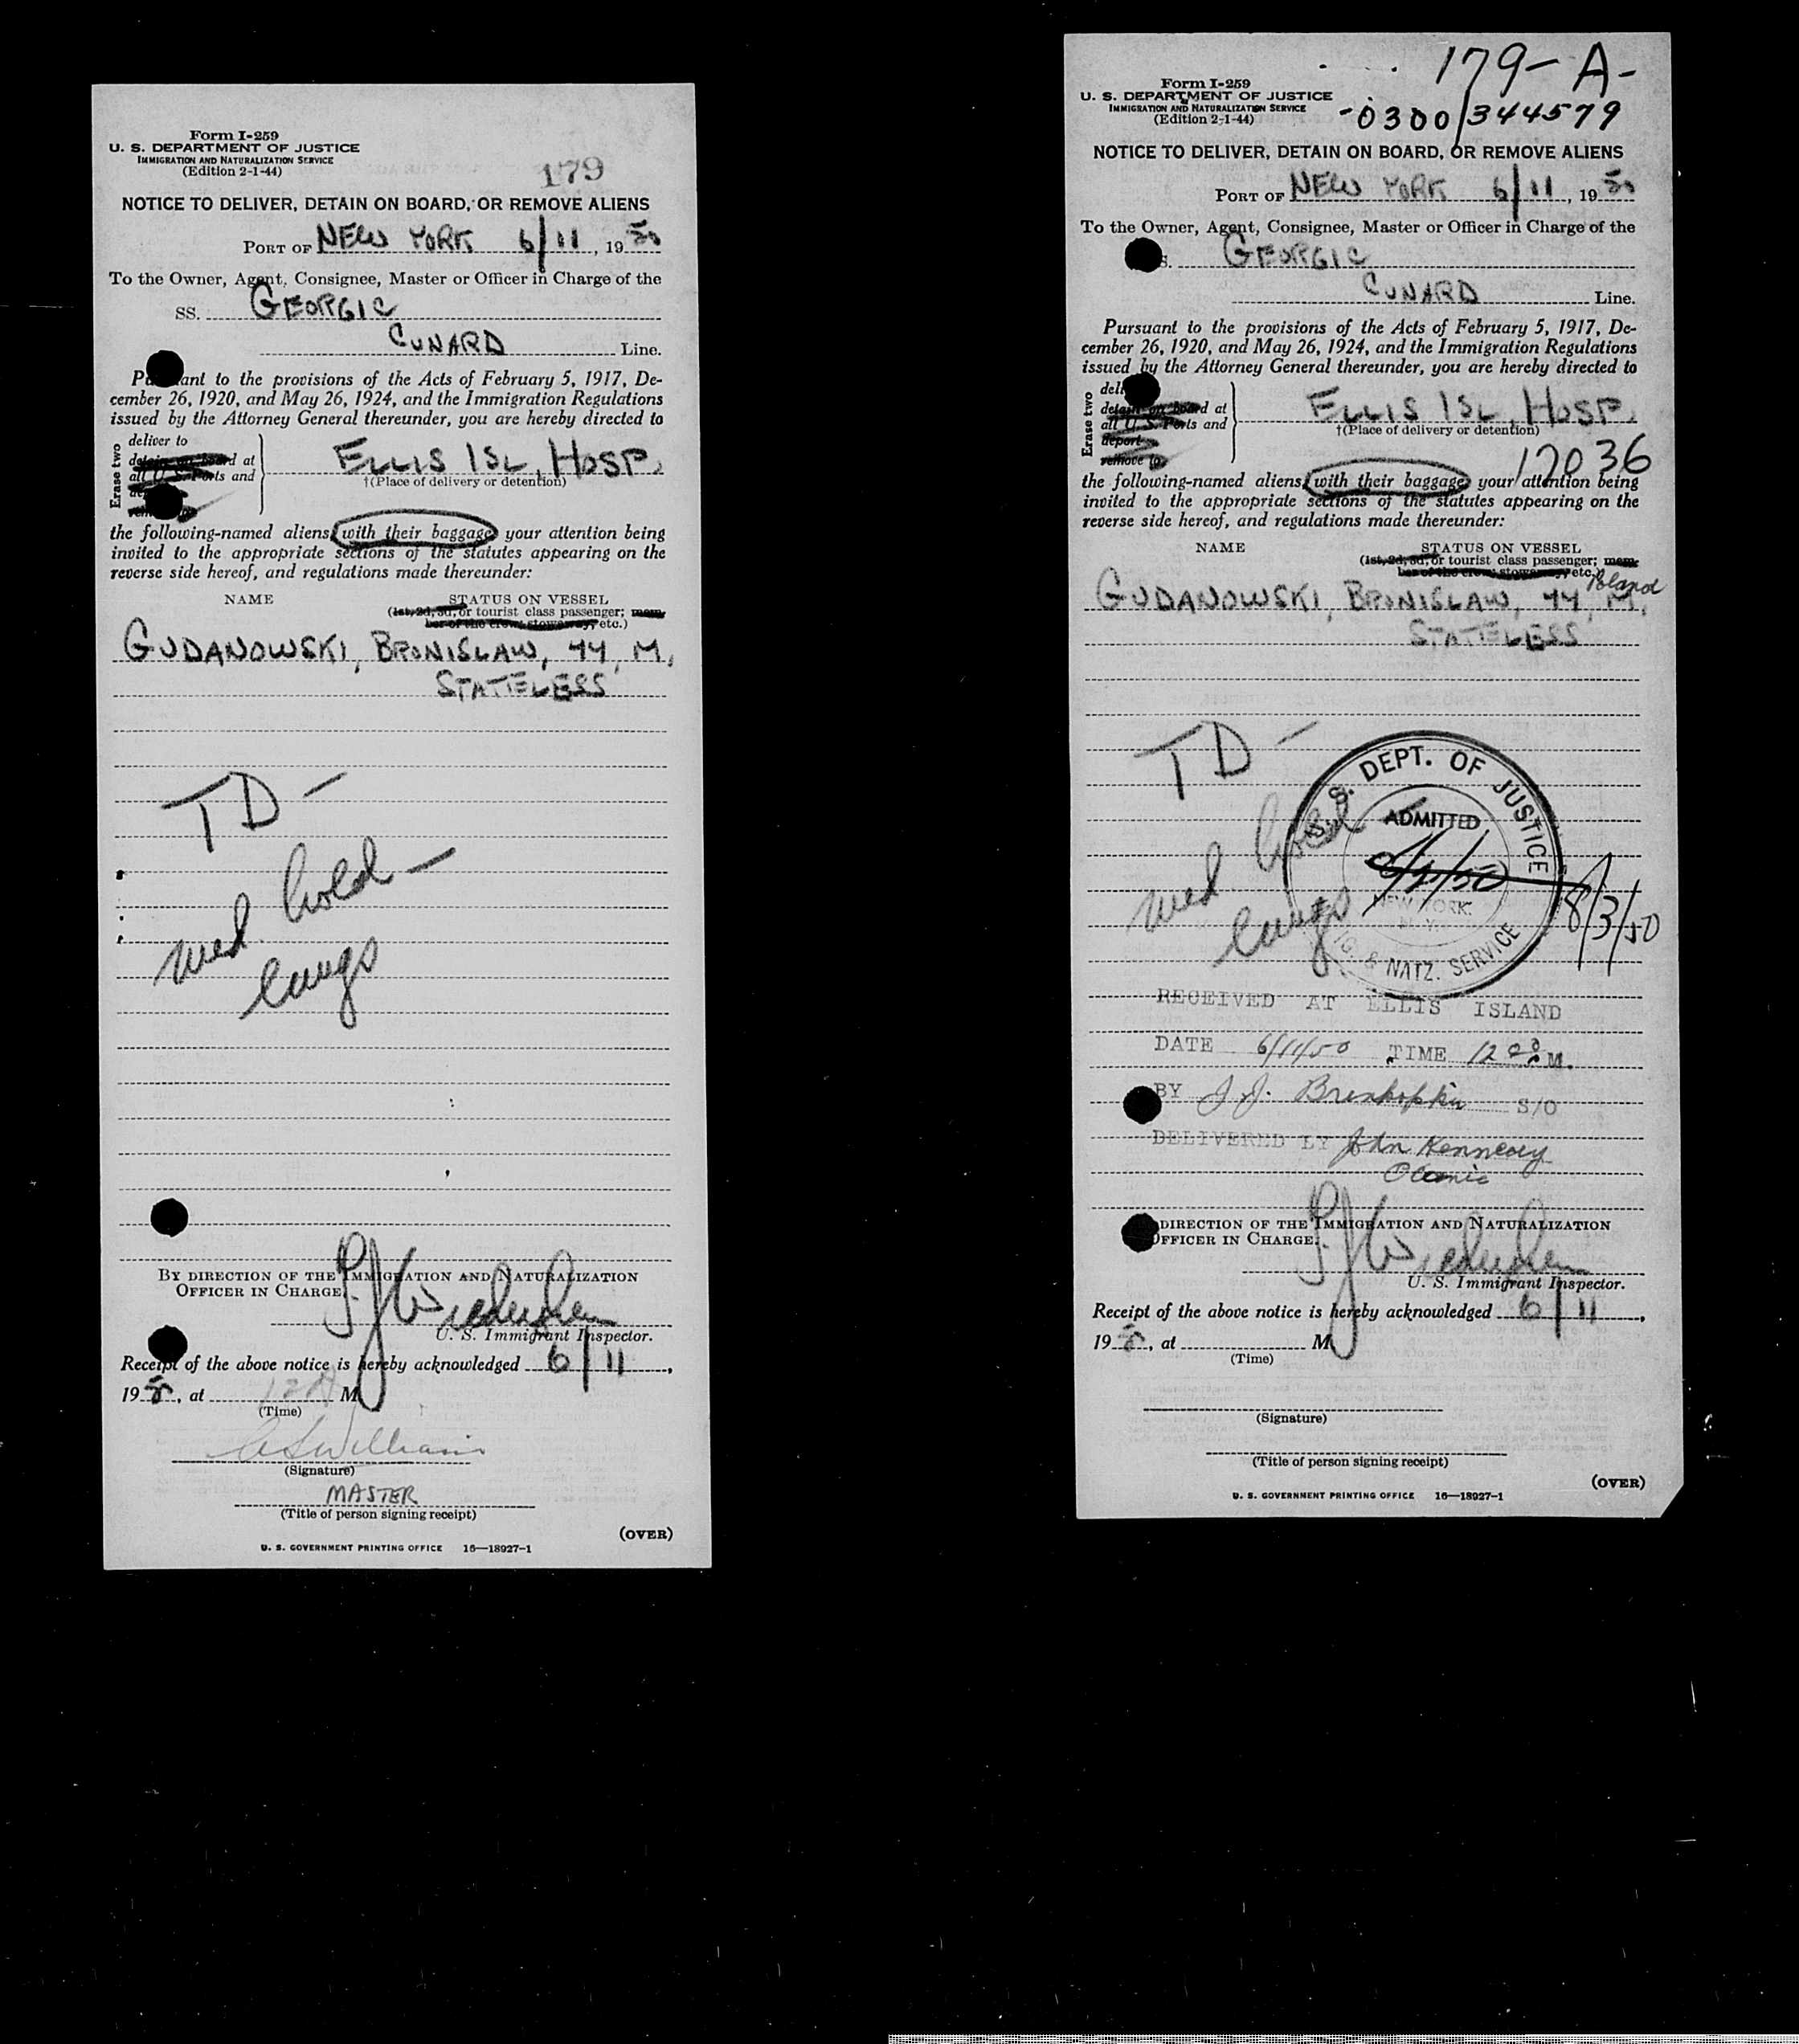 Form I-259
U. S. DEPARTMENT OF JUSTICE
IMMIGRATION AND NATURALIZATION SERVICE
(Edition 2-1-44)
179
NOTICE TO DELIVER, DETAIN ON BOARD, OR REMOVE ALIENS
PORT OF NEW YORK 6/11, 1950
To the Owner, Agent, Consignee, Master or Officer in Charge of the
SS. GEORGIC
CUNARD Line.
Pursuant to the provisions of the Acts of February 5, 1917, De-
cember 26, 1920, and May 26, 1924, and the Immigration Regulations
issued by the Attorney General thereunder, you are hereby directed to
Erase two
deliver to
detain on board at
all U. S. Ports and
remove to
ELLIS ISL, HOSP.
†(Place of delivery or detention)
the following-named aliens, with their baggage, your attention being
invited to the appropriate sections of the statutes appearing on the
reverse side hereof, and regulations made thereunder:
NAME STATUS ON VESSEL
(1st, 2d, 3d, or tourist class passenger; mem-
ber of the crew; stowaway, etc.)
GUDANOWSKI, BRONISLAW, 44, M,
STATELESS
TD —
med hold —
lungs
BY DIRECTION OF THE IMMIGRATION AND NATURALIZATION
OFFICER IN CHARGE.
U. S. Immigrant Inspector.
Receipt of the above notice is hereby acknowledged 6/11,
195, at 12 M
(Time)
Williams
(Signature)
MASTER
(Title of person signing receipt)
(OVER)
U. S. GOVERNMENT PRINTING OFFICE 16—18927-1
179-A-
Form I-259
U. S. DEPARTMENT OF JUSTICE
IMMIGRATION AND NATURALIZATION SERVICE
(Edition 2-1-44)
-0300/344579
NOTICE TO DELIVER, DETAIN ON BOARD, OR REMOVE ALIENS
PORT OF NEW YORK 6/11, 1950
To the Owner, Agent, Consignee, Master or Officer in Charge of the
S. GEORGIC
CUNARD Line.
Pursuant to the provisions of the Acts of February 5, 1917, De-
cember 26, 1920, and May 26, 1924, and the Immigration Regulations
issued by the Attorney General thereunder, you are hereby directed to
Erase two
deli
detain on board at
all U. S. Ports and
deport
remove to
ELLIS ISL, HOSP.
†(Place of delivery or detention)
12036
the following-named aliens, with their baggage, your attention being
invited to the appropriate sections of the statutes appearing on the
reverse side hereof, and regulations made thereunder:
NAME STATUS ON VESSEL
(1st, 2d, 3d, or tourist class passenger; mem-
ber of the crew; stowaway, etc.)
Poland
GUDANOWSKI, BRONISLAW, 44, M,
STATELESS
TD —
med hold
lungs
S. DEPT. OF JUSTICE
ADMITTED
NEW YORK
N. Y.
IG. & NATZ. SERVICE
8/3/50
RECEIVED AT ELLIS ISLAND
DATE 6/11/50 TIME 12 00 M.
BY J. J. S/O
DELIVERED BY John Kennedy
DIRECTION OF THE IMMIGRATION AND NATURALIZATION
OFFICER IN CHARGE.
U. S. Immigrant Inspector.
Receipt of the above notice is hereby acknowledged 6/11,
195, at M
(Time)
(Signature)
(Title of person signing receipt)
(OVER)
U. S. GOVERNMENT PRINTING OFFICE 16—18927-1